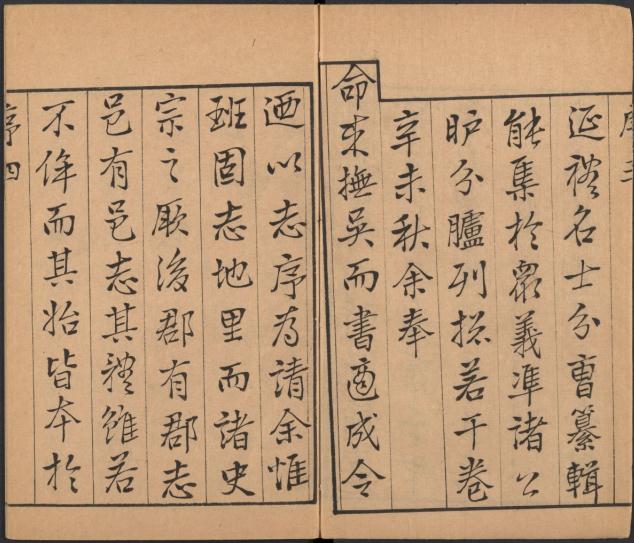 序三
延禮名士分曹纂輯
能集於眾義準諸公
眆分臚列捴若干卷
辛未秋余奉
命來撫吳而書適成令
迺以志序為請余惟
班固志地里而諸史
宗之厥後郡有郡志
邑有邑志其體雖若
不侔而其始皆本於
序四